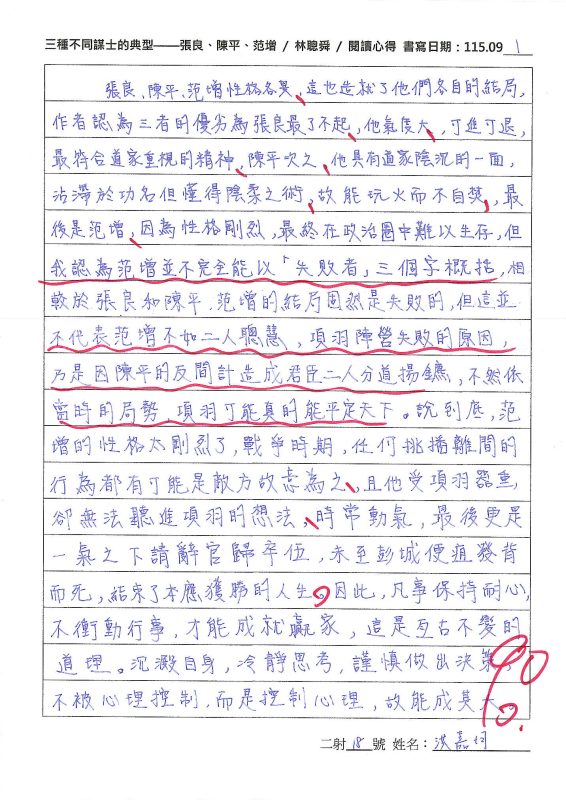 三種不同謀士的典型──張良、陳平、范增 / 林聰舜 / 閱讀心得 書寫日期：115.09 1
張良、陳平、范增性格各異、這也造就了他們各自的結局，
作者認為三者的優劣為張良最了不起、他氣度大、可進可退，
最符合道家重視的精神、陳平次之、他具有道家陰沉的一面，
沾滯於功名但懂得陰柔之術、故能玩火而不自焚，最
後是范增、因為性格剛烈，最終在政治圈中難以生存，但
我認為范增並不完全能以「失敗者」三個字概括，相
較於張良和陳平，范增的結局固然是失敗的，但這並
不代表范增不如二人聰慧，項羽陣營失敗的原因，
乃是因陳平的反間計造成君臣二人分道揚鑣，不然依
當時的局勢，項羽可能真的能平定天下。說到底，范
增的性格太剛烈了，戰爭時期，任何挑播離間的
行為都有可能是敵方故意為之、且他受項羽器重
卻無法聽進項羽的想法、時常動氣，最後更是
一氣之下請辭官歸卒伍，未至彭城便疽發背
而死，結束了本應獲勝的人生。因此，凡事保持耐心，
不衝動行事，才能成就贏家，這是亙古不變的
道理。沉澱自身，冷靜思考，謹慎做出決策，
不被心理控制，而是控制心理，故能成其大。
90
二射 18 號 姓名：洪嘉